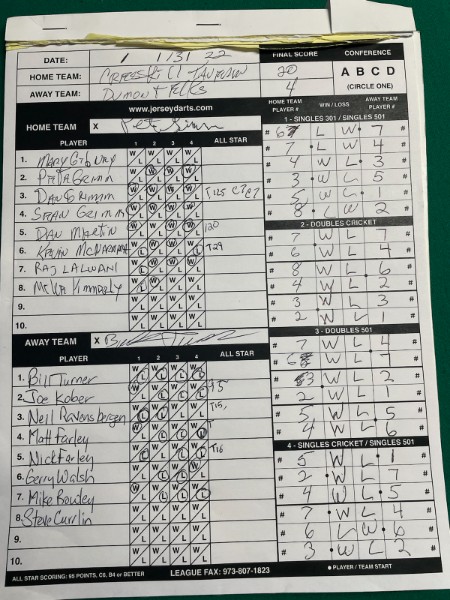 DATE: 1 / 31 22
FINAL SCORE
CONFERENCE
HOME TEAM:
20
A B C D
AWAY TEAM: Dumont Elks
4
(CIRCLE ONE)
www.jerseydarts.com
HOME TEAM X Pete Grimm
PLAYER 1 2 3 4 ALL STAR
1. Mary Gibney
2. Pete Grimm
3. Dan Grimm T125
4. Sean Grimm
5. Dan Martin 120
6. Kevin T29
7. Raj Lalwani
8. Mike Kimmerly
9.
10.
AWAY TEAM X
PLAYER 1 2 3 4 ALL STAR
1. Bill Turner
2. Joe Kober
3. Neil Ravensbergen
4. Matt Farley
5. Nick Farley T16
6. Gerry Walsh
7. Mike Bewley
8. Steve Currlin
9.
10.
ALL STAR SCORING: 95 POINTS, C6, B4 or BETTER
LEAGUE FAX: 973-807-1823
HOME TEAM PLAYER # WIN / LOSS AWAY TEAM PLAYER #
1 - SINGLES 301 / SINGLES 501
# L W 7 #
# 7 L W 4 #
# 4 W L 3 #
# 3 W L 5 #
# 5 W L 1 #
# 8 L W 2 #
2 - DOUBLES CRICKET
# 7 W L 7 #
# 6 W L 4 #
# 8 W L 6 #
# 4 W L 2 #
# 3 W L 3 #
# 2 W L 1 #
3 - DOUBLES 501
# 7 W L 4 #
# W L 7 #
# W L 2 #
# 2 W L 1 #
# 5 W L 5 #
# 4 W L 6 #
4 - SINGLES CRICKET / SINGLES 501
# 5 W L 1 #
# 2 W L 7 #
# 4 W L 5 #
# 7 W L 4 #
# 6 L W 6 #
# 3 W L 2 #
● PLAYER / TEAM START